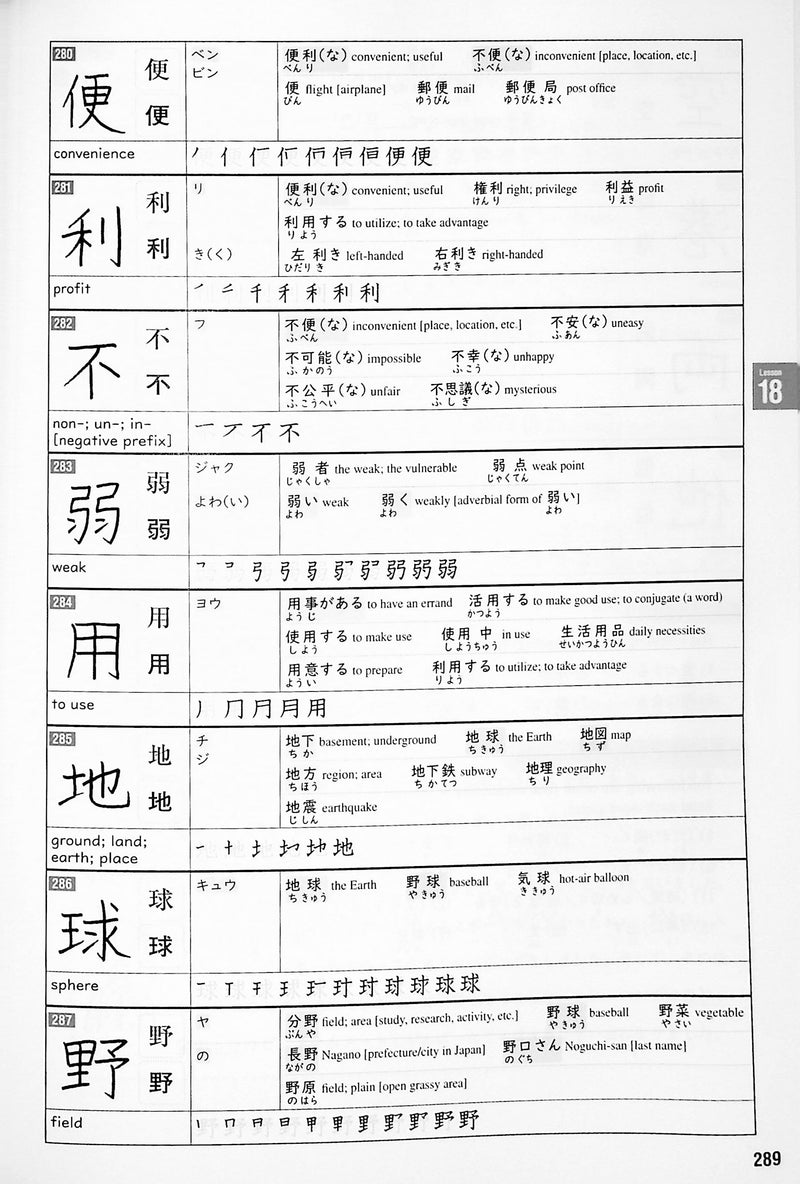 280
便 便 便
ベン
ビン
便利(な) convenient; useful 不便(な) inconvenient [place, location, etc.]
べんり ふべん
便 flight [airplane] 郵便 mail 郵便局 post office
びん ゆうびん ゆうびんきょく
convenience
281
利 利 利
リ
き(く)
便利(な) convenient; useful 権利 right; privilege 利益 profit
べんり けんり りえき
利用する to utilize; to take advantage
りよう
左利き left-handed 右利き right-handed
ひだりき みぎき
profit
282
不 不 不
フ
不便(な) inconvenient [place, location, etc.] 不安(な) uneasy
ふべん ふあん
不可能(な) impossible 不幸(な) unhappy
ふかのう ふこう
不公平(な) unfair 不思議(な) mysterious
ふこうへい ふしぎ
non-; un-; in-
[negative prefix]
Lesson
18
283
弱 弱 弱
ジャク
よわ(い)
弱者 the weak; the vulnerable 弱点 weak point
じゃくしゃ じゃくてん
弱い weak 弱く weakly [adverbial form of 弱い]
よわ よわ よわ
weak
284
用 用 用
ヨウ
用事がある to have an errand 活用する to make good use; to conjugate (a word)
ようじ かつよう
使用する to make use 使用中 in use 生活用品 daily necessities
しよう しようちゅう せいかつようひん
用意する to prepare 利用する to utilize; to take advantage
ようい りよう
to use
285
地 地 地
チ
ジ
地下 basement; underground 地球 the Earth 地図 map
ちか ちきゅう ちず
地方 region; area 地下鉄 subway 地理 geography
ちほう ちかてつ ちり
地震 earthquake
じしん
ground; land;
earth; place
286
球 球 球
キュウ
地球 the Earth 野球 baseball 気球 hot-air balloon
ちきゅう やきゅう ききゅう
sphere
287
野 野 野
ヤ
の
分野 field; area [study, research, activity, etc.] 野球 baseball 野菜 vegetable
ぶんや やきゅう やさい
長野 Nagano [prefecture/city in Japan] 野口さん Noguchi-san [last name]
ながの のぐち
野原 field; plain [open grassy area]
のはら
field
289